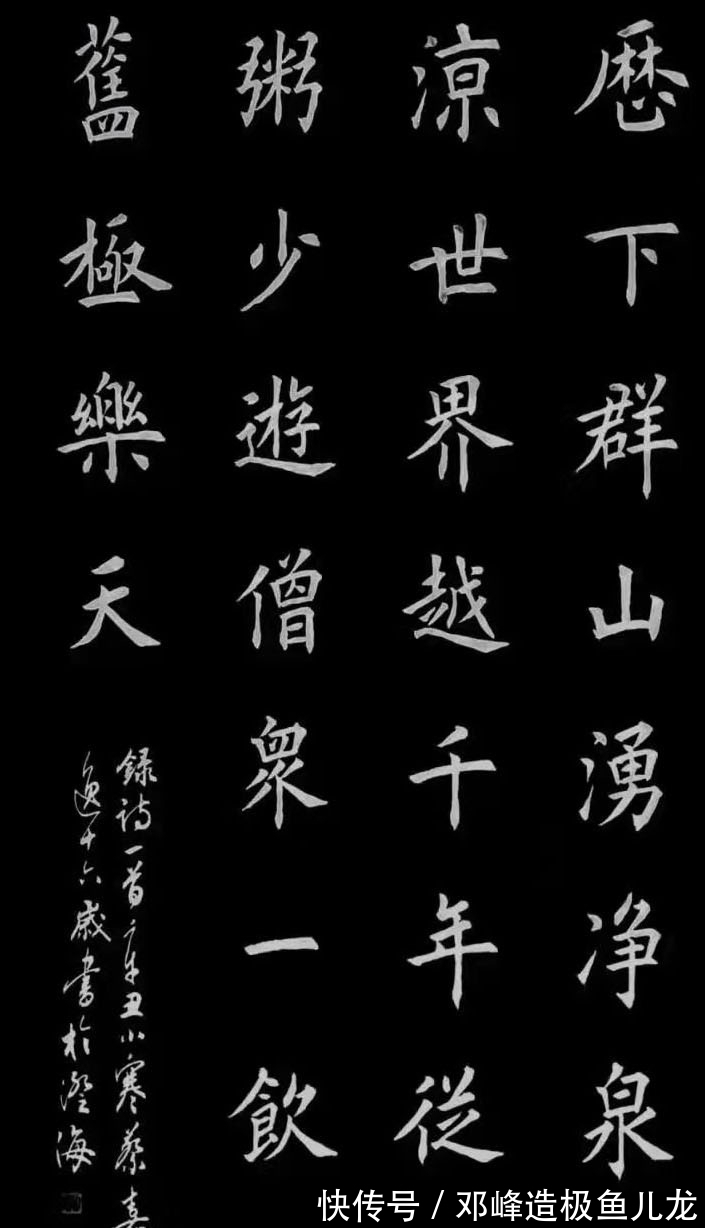 歷下群山湧净泉
涼世界越千年從
粥少遊僧眾一飲
舊極樂天
録詩一首辛丑小寒蔡
逸十六歲書於澄海
快传号 / 邓峰造极鱼儿龙